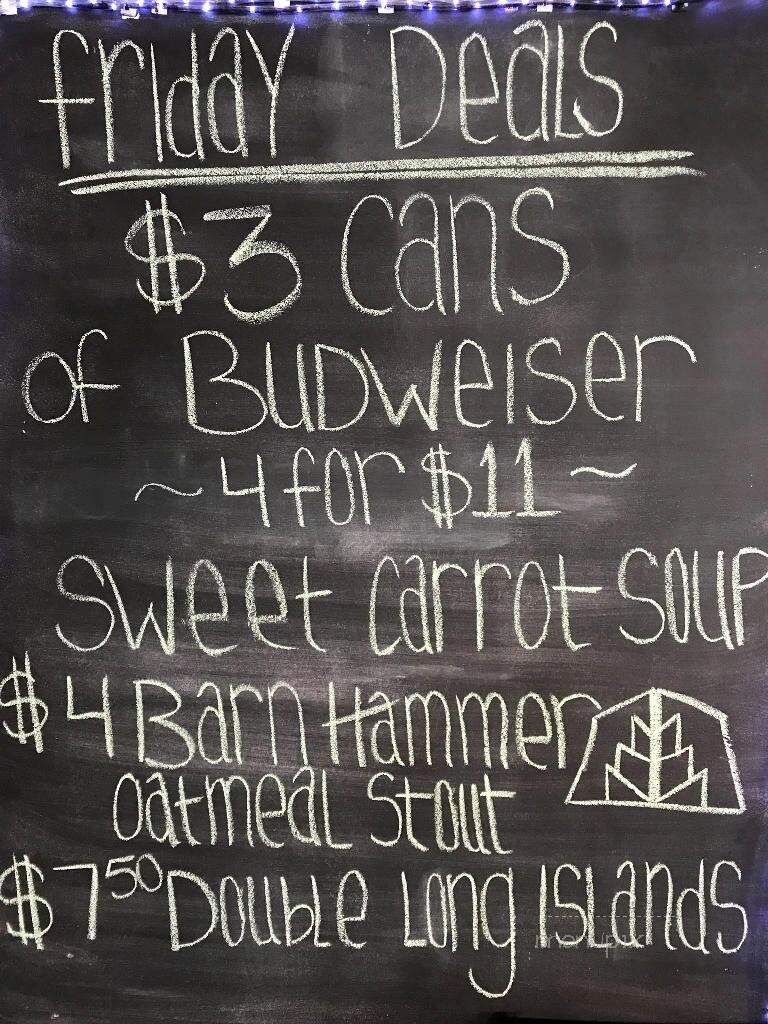 friday Deals
$3 Cans
of Budweiser
~ 4 for $11 ~
Sweet Carrot Soup
$4 Barn Hammer
Oatmeal Stout
$7 50 Double Long Islands
menupix